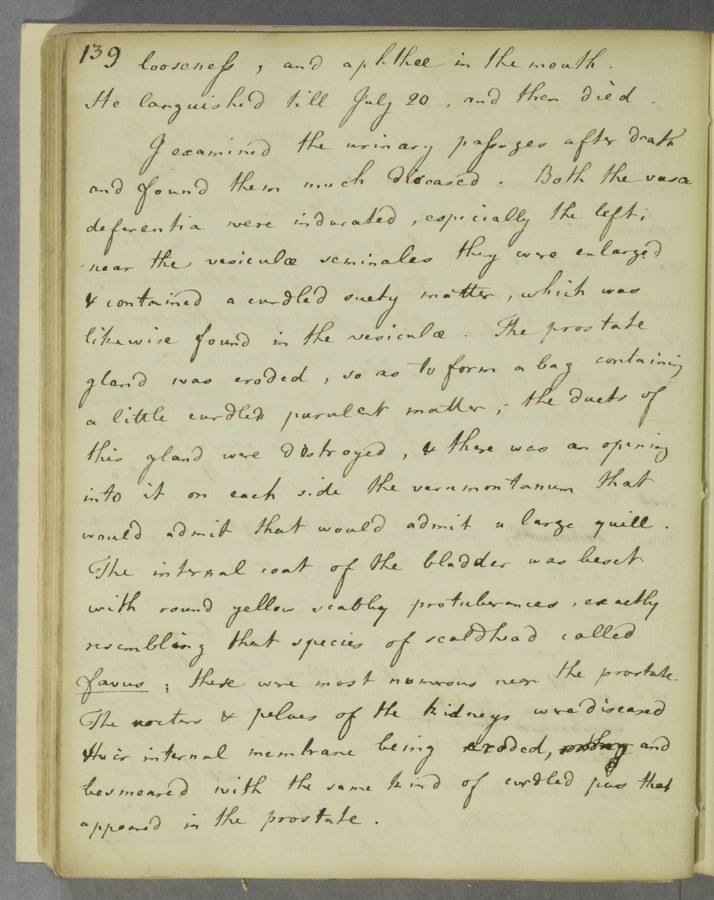 139 looseness, and aphthee in the mouth.
He languish'd till July 20, and then died.
I examined the urinary passages after death
and found them much diseased. Both the vasa
deferentia were indurated, especially the left;
near the vesiculæ seminales they were enlarged
& contained a curdled suety matter, which was
likewise found in the vesiculæ. The prostate
gland was eroded, so as to form a bag containing
a little curdled purulent matter; the ducts of
this gland were destroyed, & there was an opening
into it on each side the verumontanum that
would admit that would admit a large quill.
The internal coat of the bladder was beset
with round yellow scabby protuberances, exactly
resembling that species of scaldhead called
favus; these were most numerous near the prostate.
The ureters & pelves of the kidneys were diseased
their internal membrane being eroded, and
besmeared with the same kind of curdled pus that
appeared in the prostate.